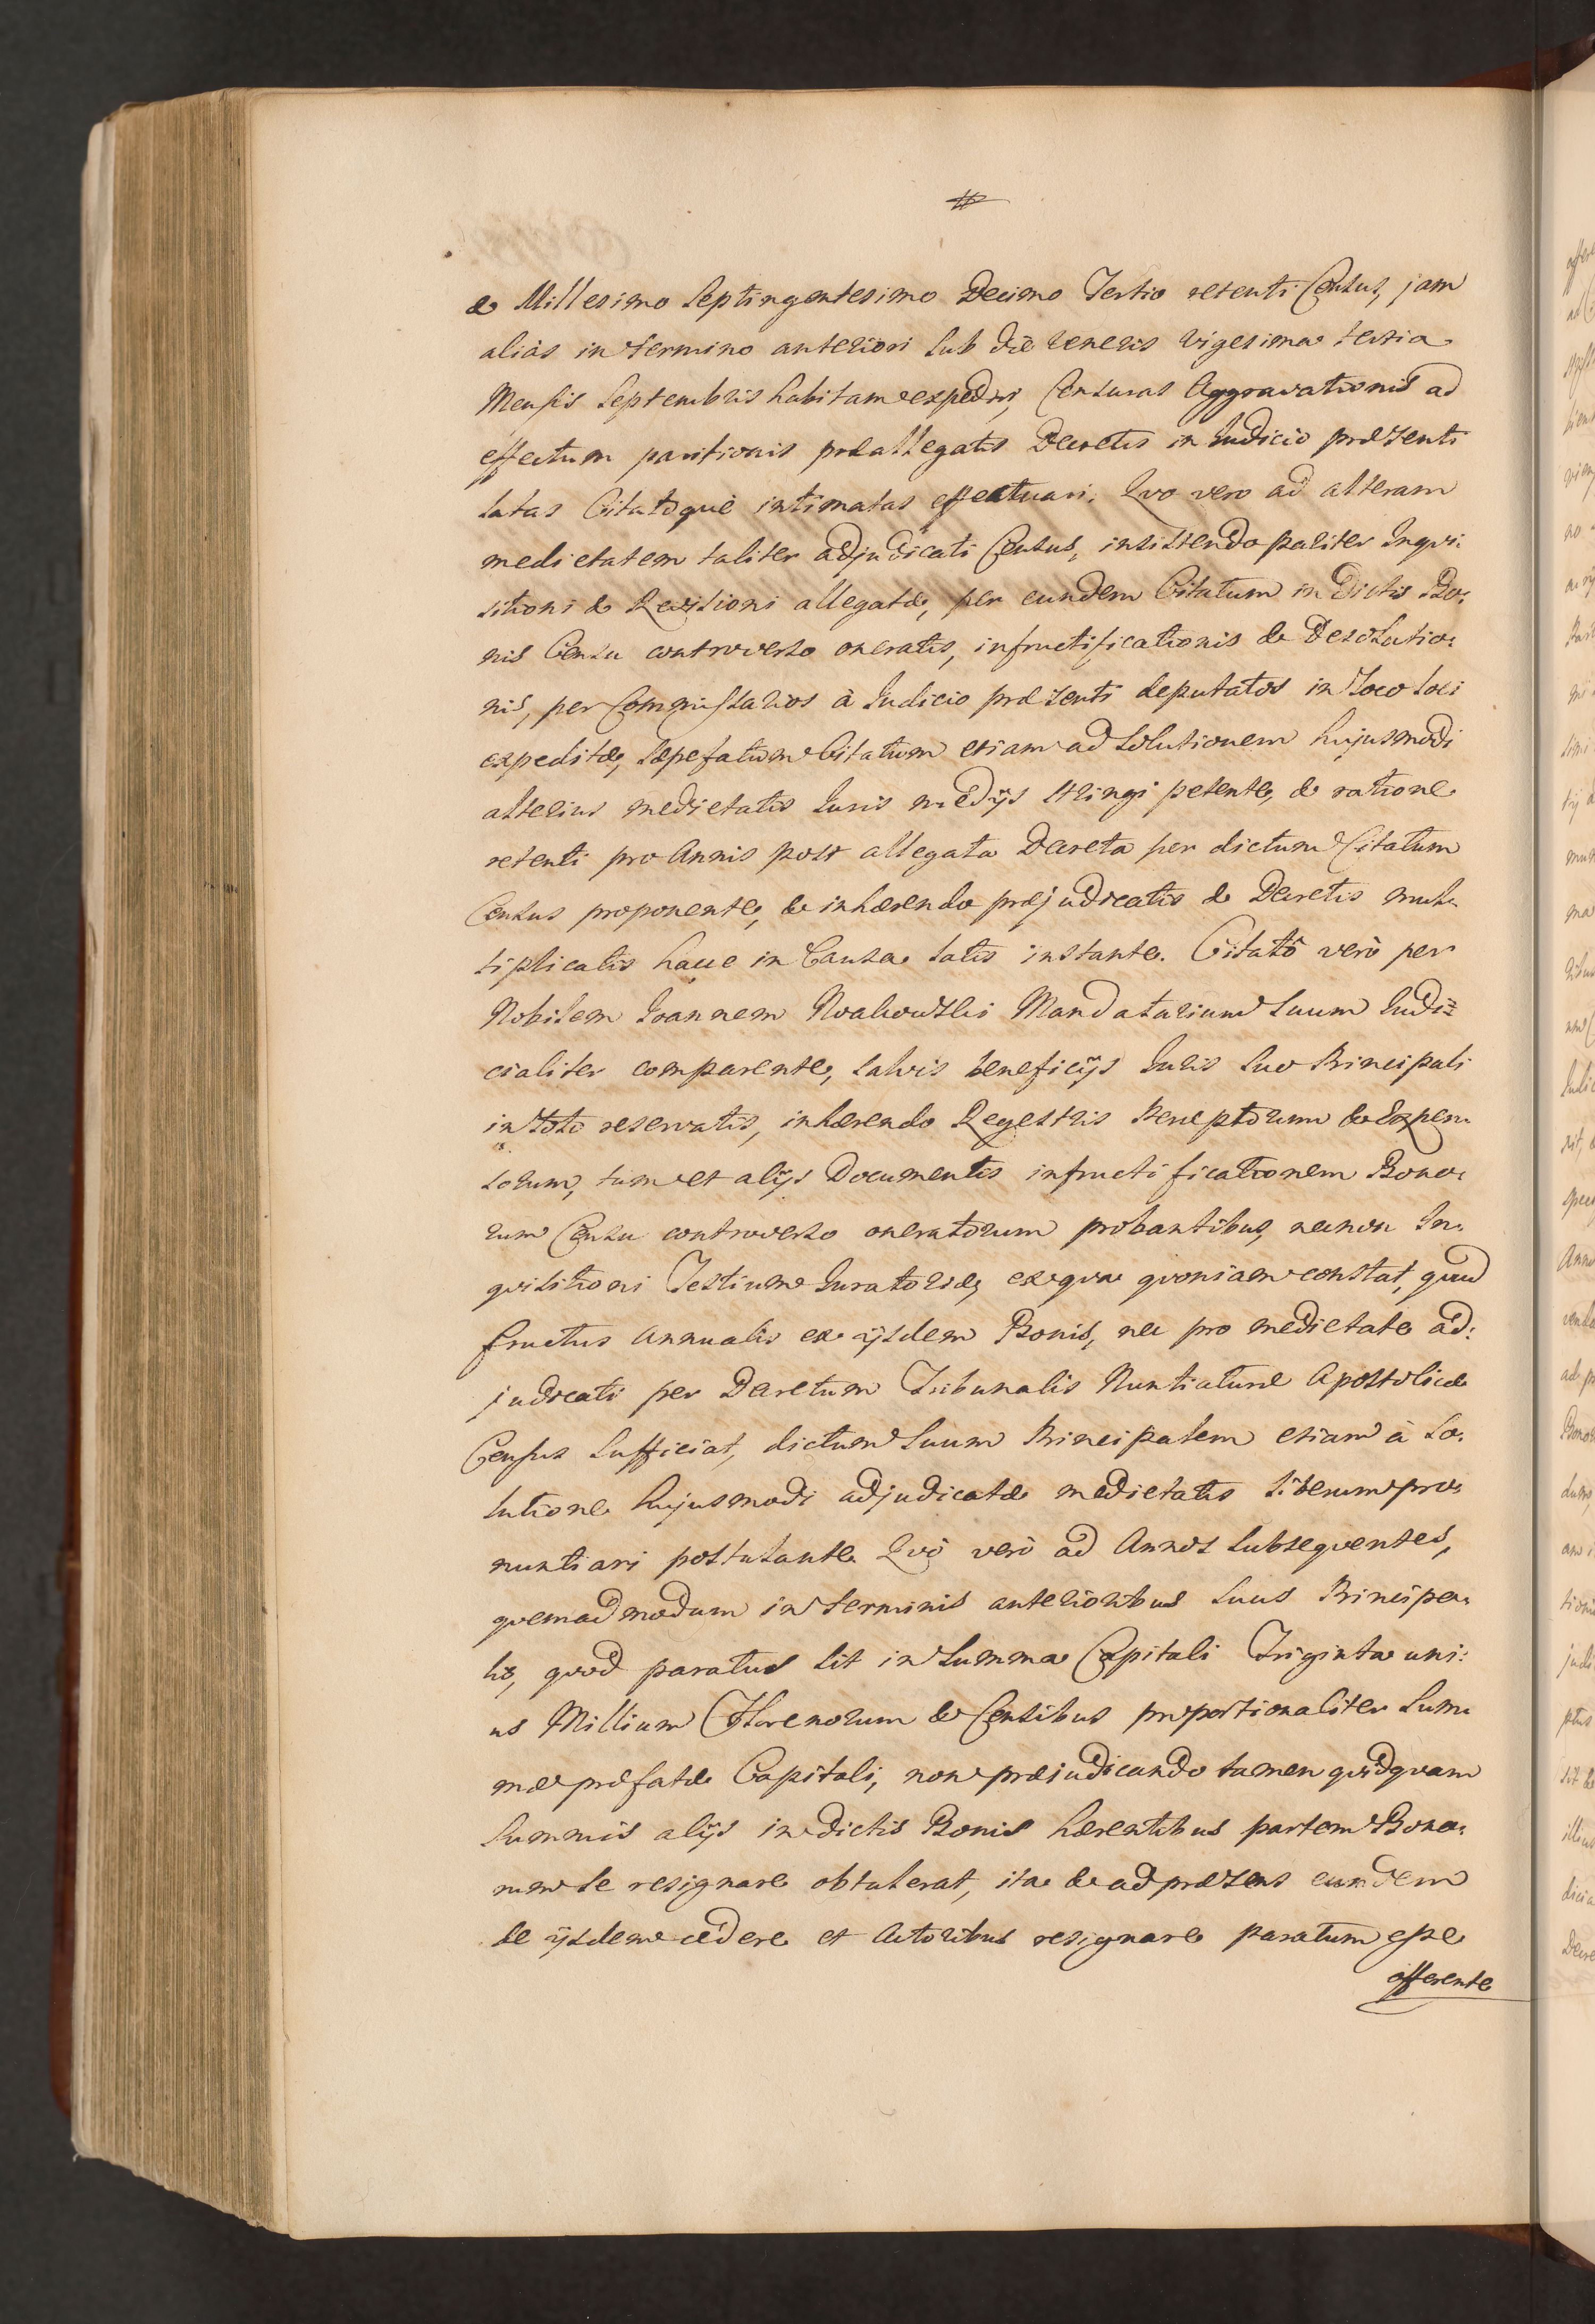 & Millesimo Septingentesimo Decimo Tertio retenti Census, jam
aliàs in termino anteriori sub die Veneris Vigesima tertia
Mensis Septembris habitam expediri, Censuras Aggravationis ad
effectum paritionis præallegatis Decretis in Judicio præsenti
latas Citatoque intimatas effectuari. Qvo vero ad alteram
medietatem taliter adjudicati Census, insistendo pariter Inqvi:
sitioni & Revisioni allegatæ, per eundem Citatum in Dictis Bo:
nis Censu controverso oneratis, infructificationis & Desolatio:
nis, per Commissarios à Judicio præsenti deputatos in Loco loci
expeditæ, sæpefatum Citatum etiam ad solutionem hujusmodi
alterius medietatis Juris medijs stringi petente, & ratione
retenti pro Annis post allegata Decreta per dictum Citatum
Census proponente, & inhærendo præjudicatis & Decretis mul:
tiplicatis hacce in Causa latis instante. Citatô verò per
Nobilem Joannem Noakowski Mandatarium suum Judi:
cialiter comparente, salvis beneficijs Juris suo Principali
in toto reservatis, inhærendo Regestris Perceptorum & Expen:
sorum, tum et alijs Documentis infructificationem Bono:
rum Censu controverso oneratorum probantibus, necnon In:
qvisitioni Testium Juratoriæ, ex qva qvoniam constat, qvod
fructus Annualis ex ijsdem Bonis, nec pro medietate ad:
judicati per Decretum Tribunalis Nuntiaturæ Apostolicæ
Census sufficiat, dictum suum Principalem etiam à so:
lutione hujusmodi adjudicatæ medietatis liberum pro:
nuntiari postulante Qvò verò ad Annos subseqventes,
qvemadmodum in terminis anterioribus suus Principa:
lis, qvod paratus sit in Summa Capitali Triginta uni:
us Millium Florenorum & Censibus proportionaliter Sum:
mæ præfatæ Capitali, non præjudicando tamen qvidqvam
Summis alijs in dictis Bonis hærentibus partem Bono:
rum se resignare obtulerat, ita & ad præsens eundem
de ijsdem cedere et Actoribus resignare paratum esse
offerente